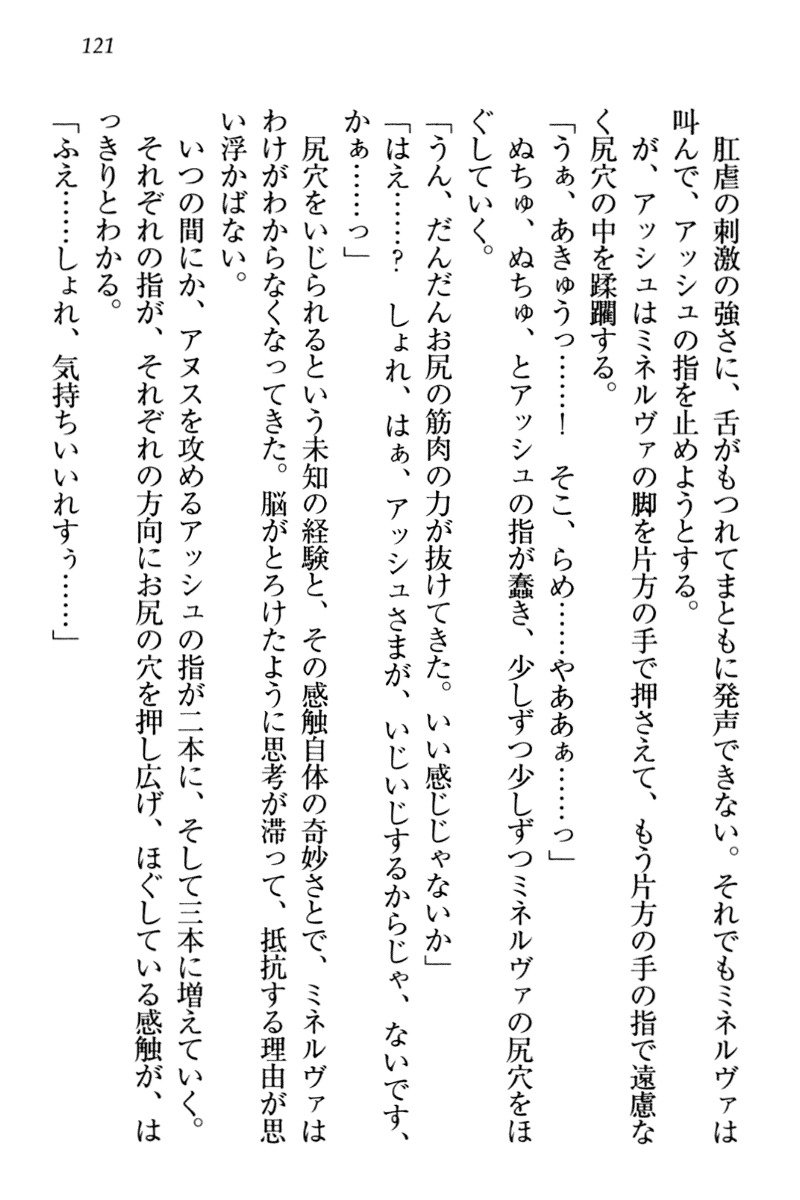 121
肛虐の刺激の強さに、舌がもつれてまともに発声できない。それでもミネルヴァは
叫んで、アッシュの指を止めようとする。
が、アッシュはミネルヴァの脚を片方の手で押さえて、もう片方の手の指で遠慮な
く尻穴の中を蹂躙する。
「うぁ、あきゅうっ……！　そこ、らめ……やああぁ……っ」
ぬちゅ、ぬちゅ、とアッシュの指が蠢き、少しずつ少しずつミネルヴァの尻穴をほ
ぐしていく。
「うん、だんだんお尻の筋肉の力が抜けてきた。いい感じじゃないか」
「はえ……？　しょれ、はぁ、アッシュさまが、いじいじするからじゃ、ないです、
かぁ……っ」
尻穴をいじられるという未知の経験と、その感触自体の奇妙さとで、ミネルヴァは
わけがわからなくなってきた。脳がとろけたように思考が滞って、抵抗する理由が思
い浮かばない。
いつの間にか、アヌスを攻めるアッシュの指が二本に、そして三本に増えていく。
それぞれの指が、それぞれの方向にお尻の穴を押し広げ、ほぐしている感触が、は
っきりとわかる。
「ふえ……しょれ、気持ちいいれすぅ……」